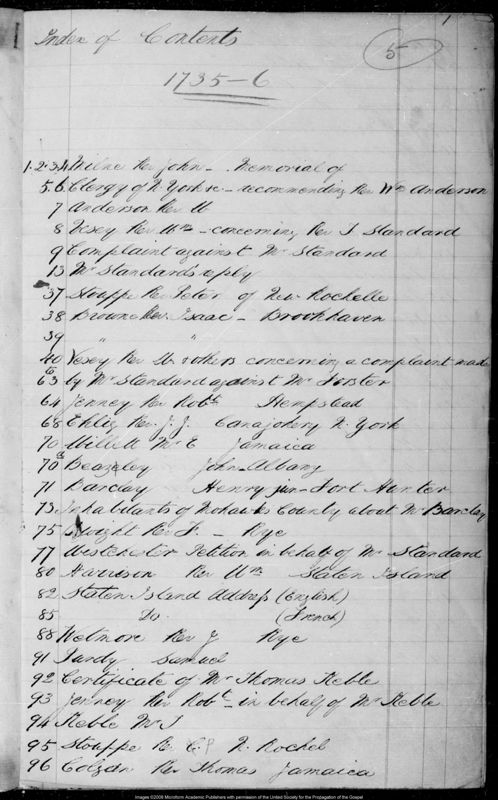 1
Index of Contents
5
1735-6
1.2.3.4 Milne Rev John - Memorial of
5.6 Clergy of N York &c - recommending Rev Wm Anderson
7 Anderson Rev W
8 Vesey Rev Wm - concerning Rev J Standard
9 Complaint against Mr Standard
13 Mr Standard's reply
37 Stouppe Rev Peter of New Rochelle
38 Browne Rev. Isaac - Brookhaven
39 " "
40 Vesey Rev W & others concerning a complaint made
to
63 by Mr Standard against Mr Forster
64 Jenney Rev Robt Hempstead
68 Ehlig Rev. J. J. Canajohery N. York
70 Willett Mr E Jamaica
70 Beazeley John Albany
71 Barclay Henry jun - Fort Hunter
73 Inhabitants of Mohawks County about Mr Barclay
75 Dwight Rev F - Rye
77 Westchester Petition in behalf of Mr Standard
80 Harrison Rev Wm Staten Island
82 Staten Island Address (English)
85 Do. (French)
88 Wetmore Rev J Rye
91 Purdy Samuel
92 Certificate of Mr Thomas Keble
93 Jenney Rev Robt - in behalf of Mr Keble
94 Keble Mr J
95 Stouppe Re P N. Rochel
96 Colgan Rev Thomas Jamaica
Images ©2006 Microform Academic Publishers with permission of the United Society for the Propagation of the Gospel